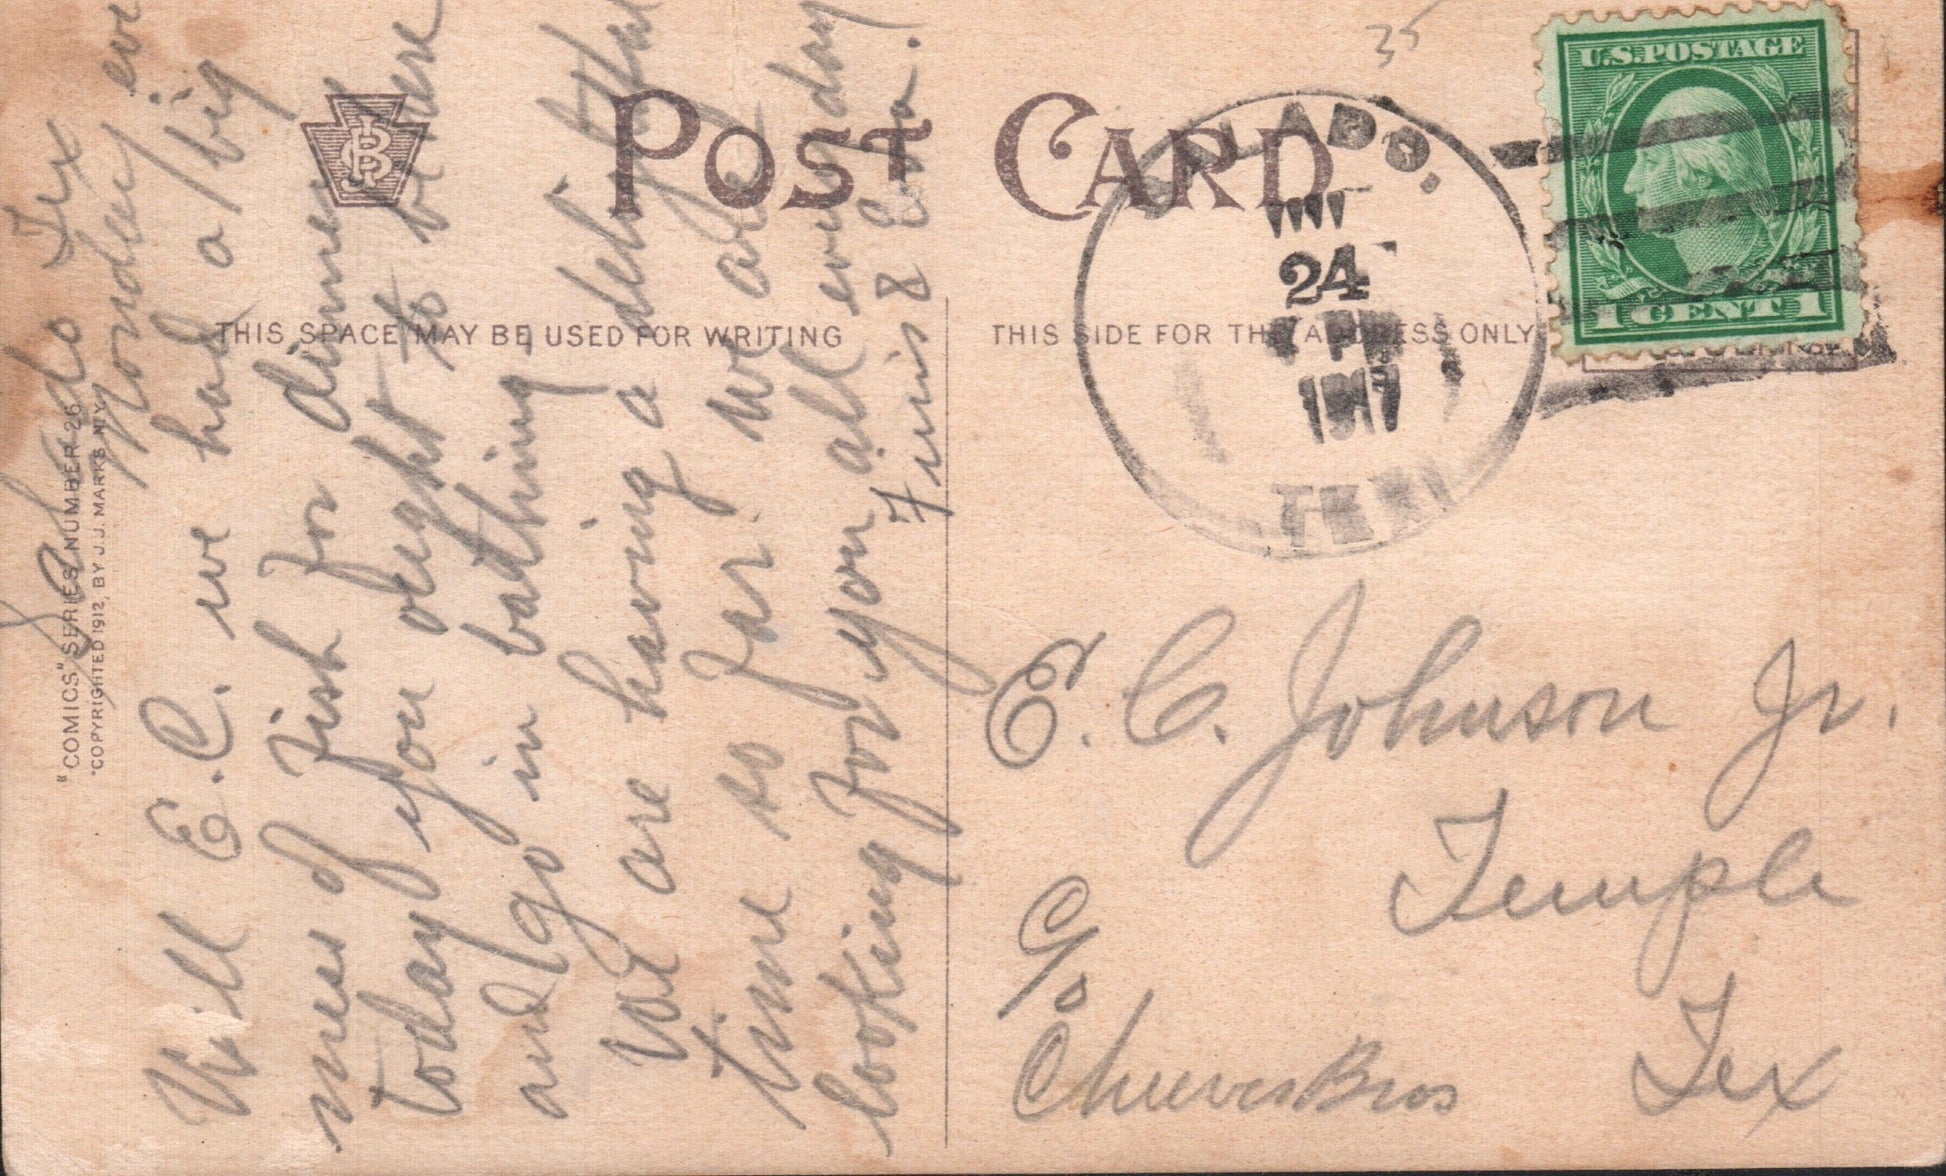 Salado Tex
Monday eve
Well E.C. we had a big
mess of fish for dinner
today you ought to be here
and go in bathing
We are having a delightful
time so far. We are
looking for you all every day
Finis & Eva.
"COMICS" SERIES, NUMBER 26
COPYRIGHTED 1912, BY J.J. MARKS, N.Y.
JB
POST CARD
THIS SPACE MAY BE USED FOR WRITING
THIS SIDE FOR THE ADDRESS ONLY
35
SALADO.
24
191
TEX
U.S. POSTAGE
1 CENT 1
E. C. Johnson Jr.
Temple
Tex
C/o
Cheeves Bros